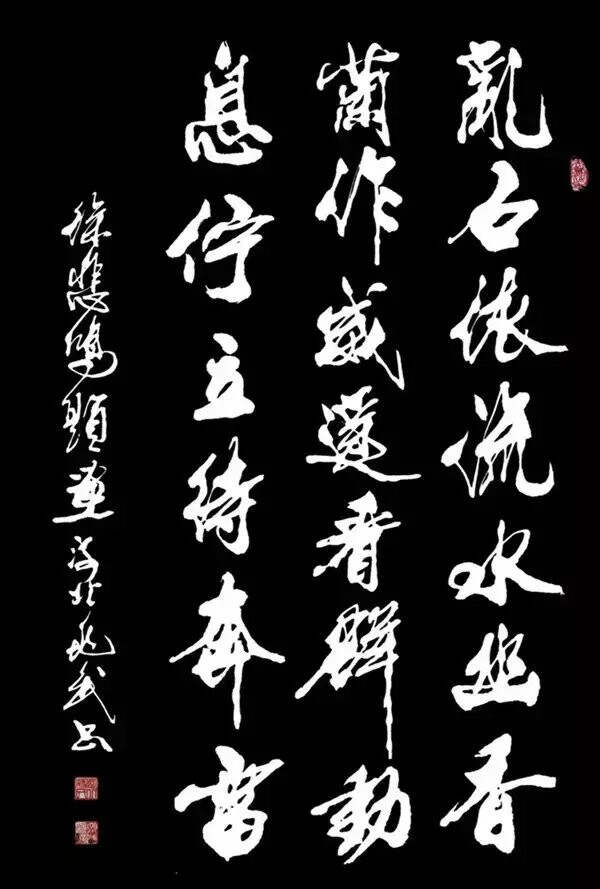 亂石依流水幽香
蘭作威遥看群動
息佇立待奔雷
徐悲鴻題畫 河北武書